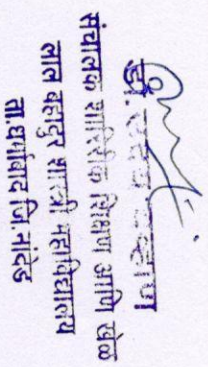 डॉ.
संचालक शारिरीक शिक्षण आणि खेळ
लाल बहादुर शास्त्री महाविद्यालय
ता.धर्माबाद जि.नांदेड